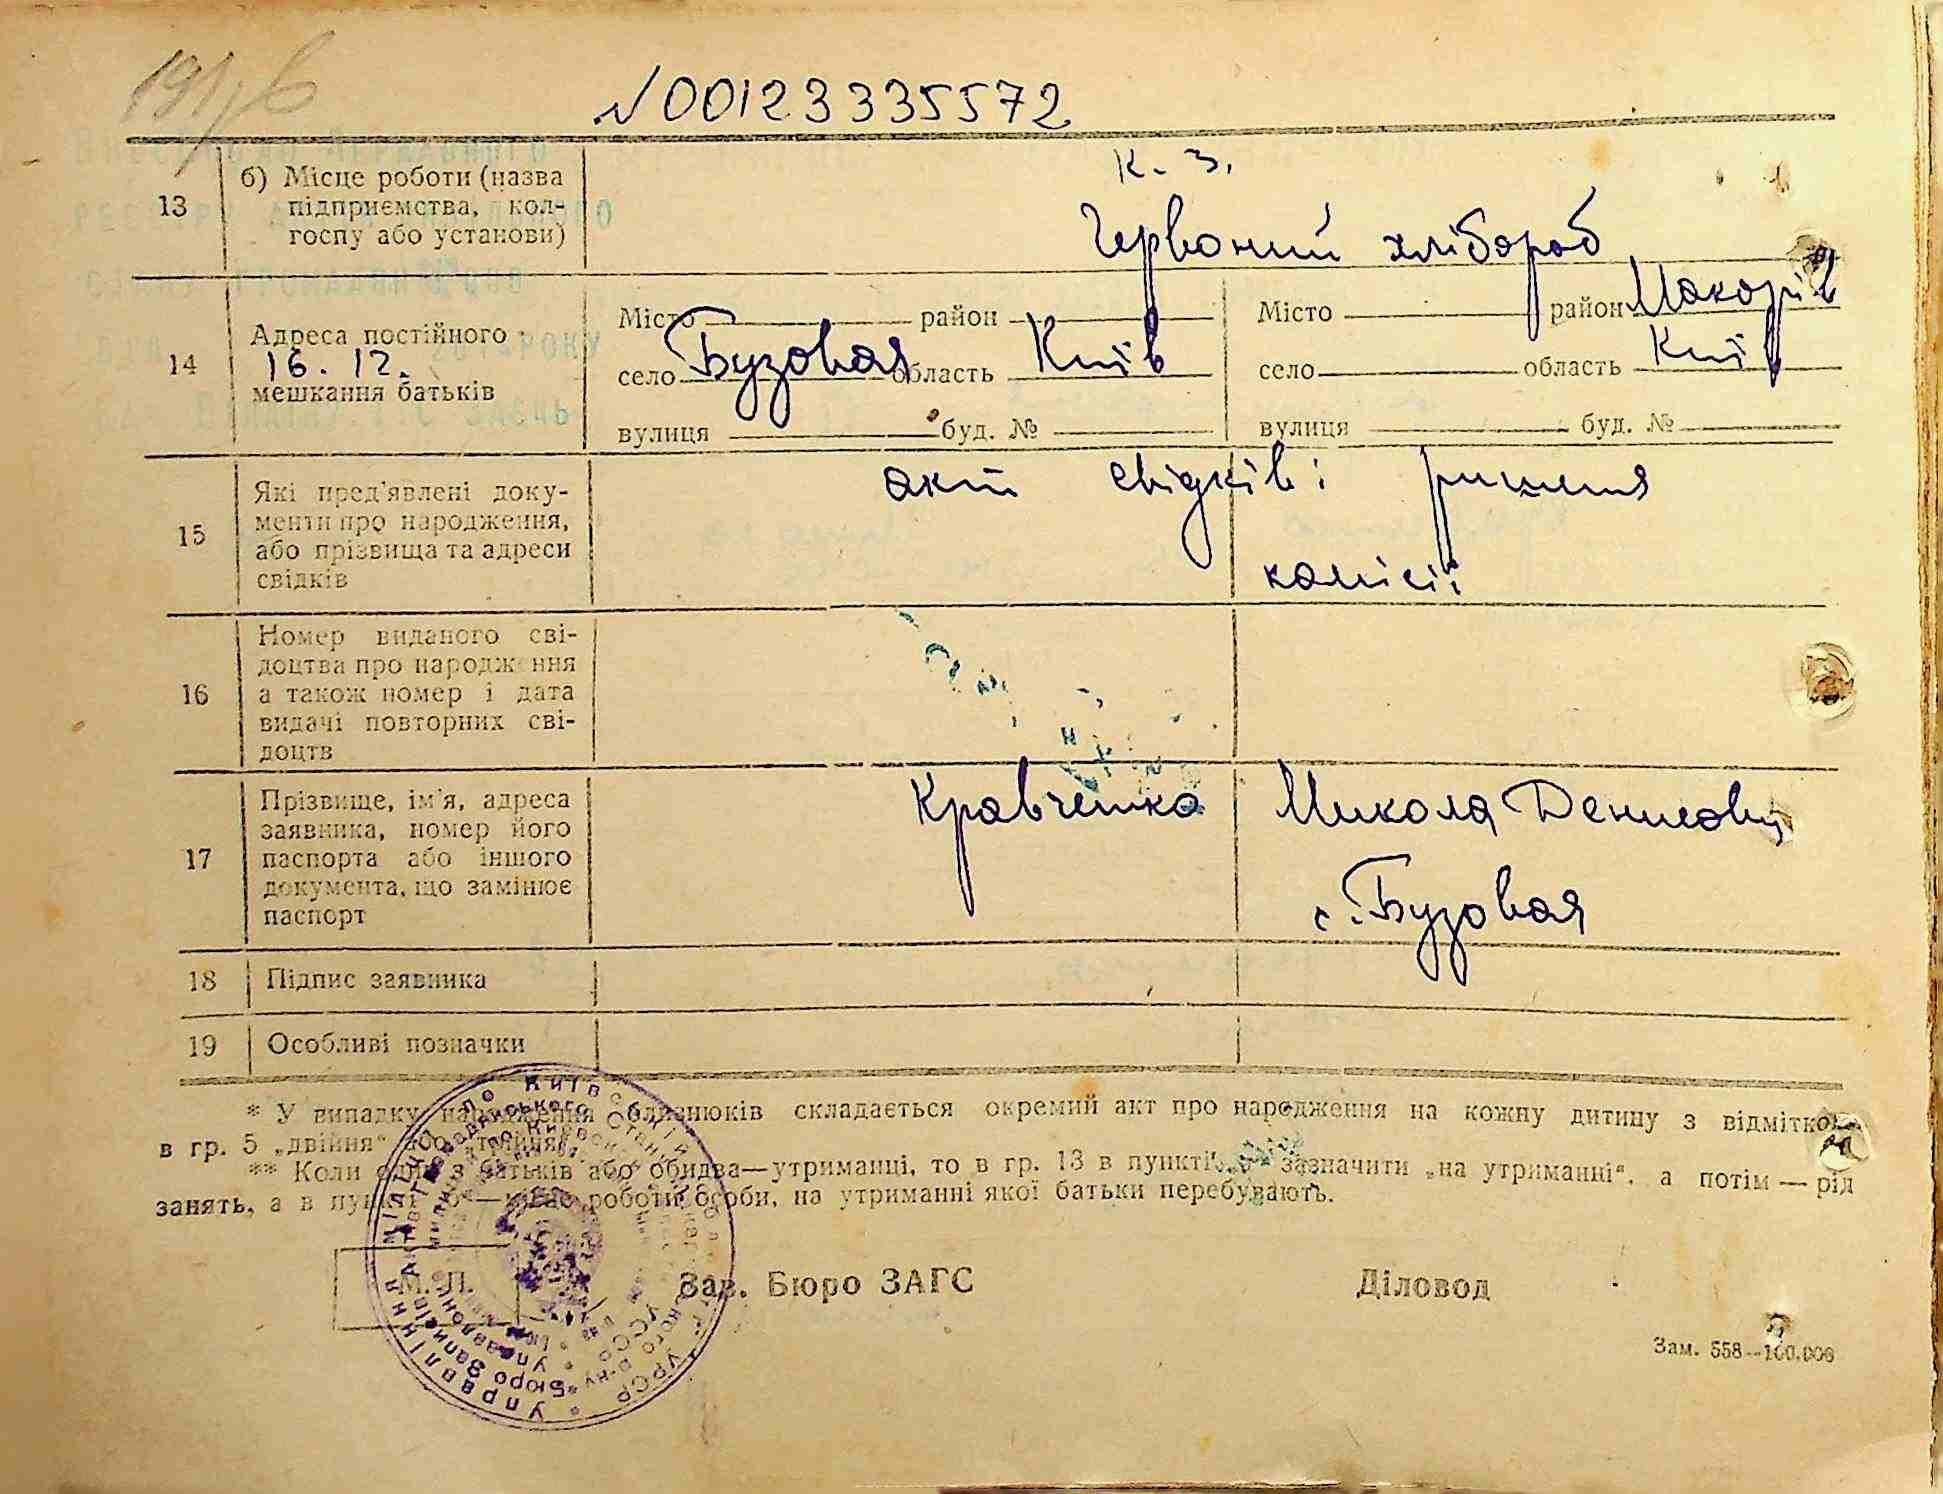 191/6
N00123335572
13
б) Місце роботи (назва
підприємства, кол-
госпу або установи)
К. З.
Червоний хлібороб
14
Адреса постійного
16. 12.
мешкання батьків
Місто район
село Бузовая область Київ
вулиця буд. №
Місто район Макарів
село область Київ
вулиця буд. №
15
Які пред'явлені доку-
менти про народження,
або прізвища та адреси
свідків
акт свідків і ришення
комісії
16
Номер виданого сві-
доцтва про народження
а також номер і дата
видачі повторних сві-
доцтв
17
Прізвище, ім'я, адреса
заявника, номер його
паспорта або іншого
документа, що замінює
паспорт
Кравченко Микола Денисович
с. Бузовая
18
Підпис заявника
19
Особливі позначки
* У випадку народження близнюків складається окремий акт про народження на кожну дитину з відміткою
в гр. 5 „двійня“ або „трійня“.
** Коли один з батьків або обидва—утриманці, то в гр. 13 в пункті зазначити „на утриманні“, а потім — рід
занять, а в пункті „б“—місце роботи особи, на утриманні якої батьки перебувають.
М. П.
Зав. Бюро ЗАГС
Діловод
Зам. 558—100.000